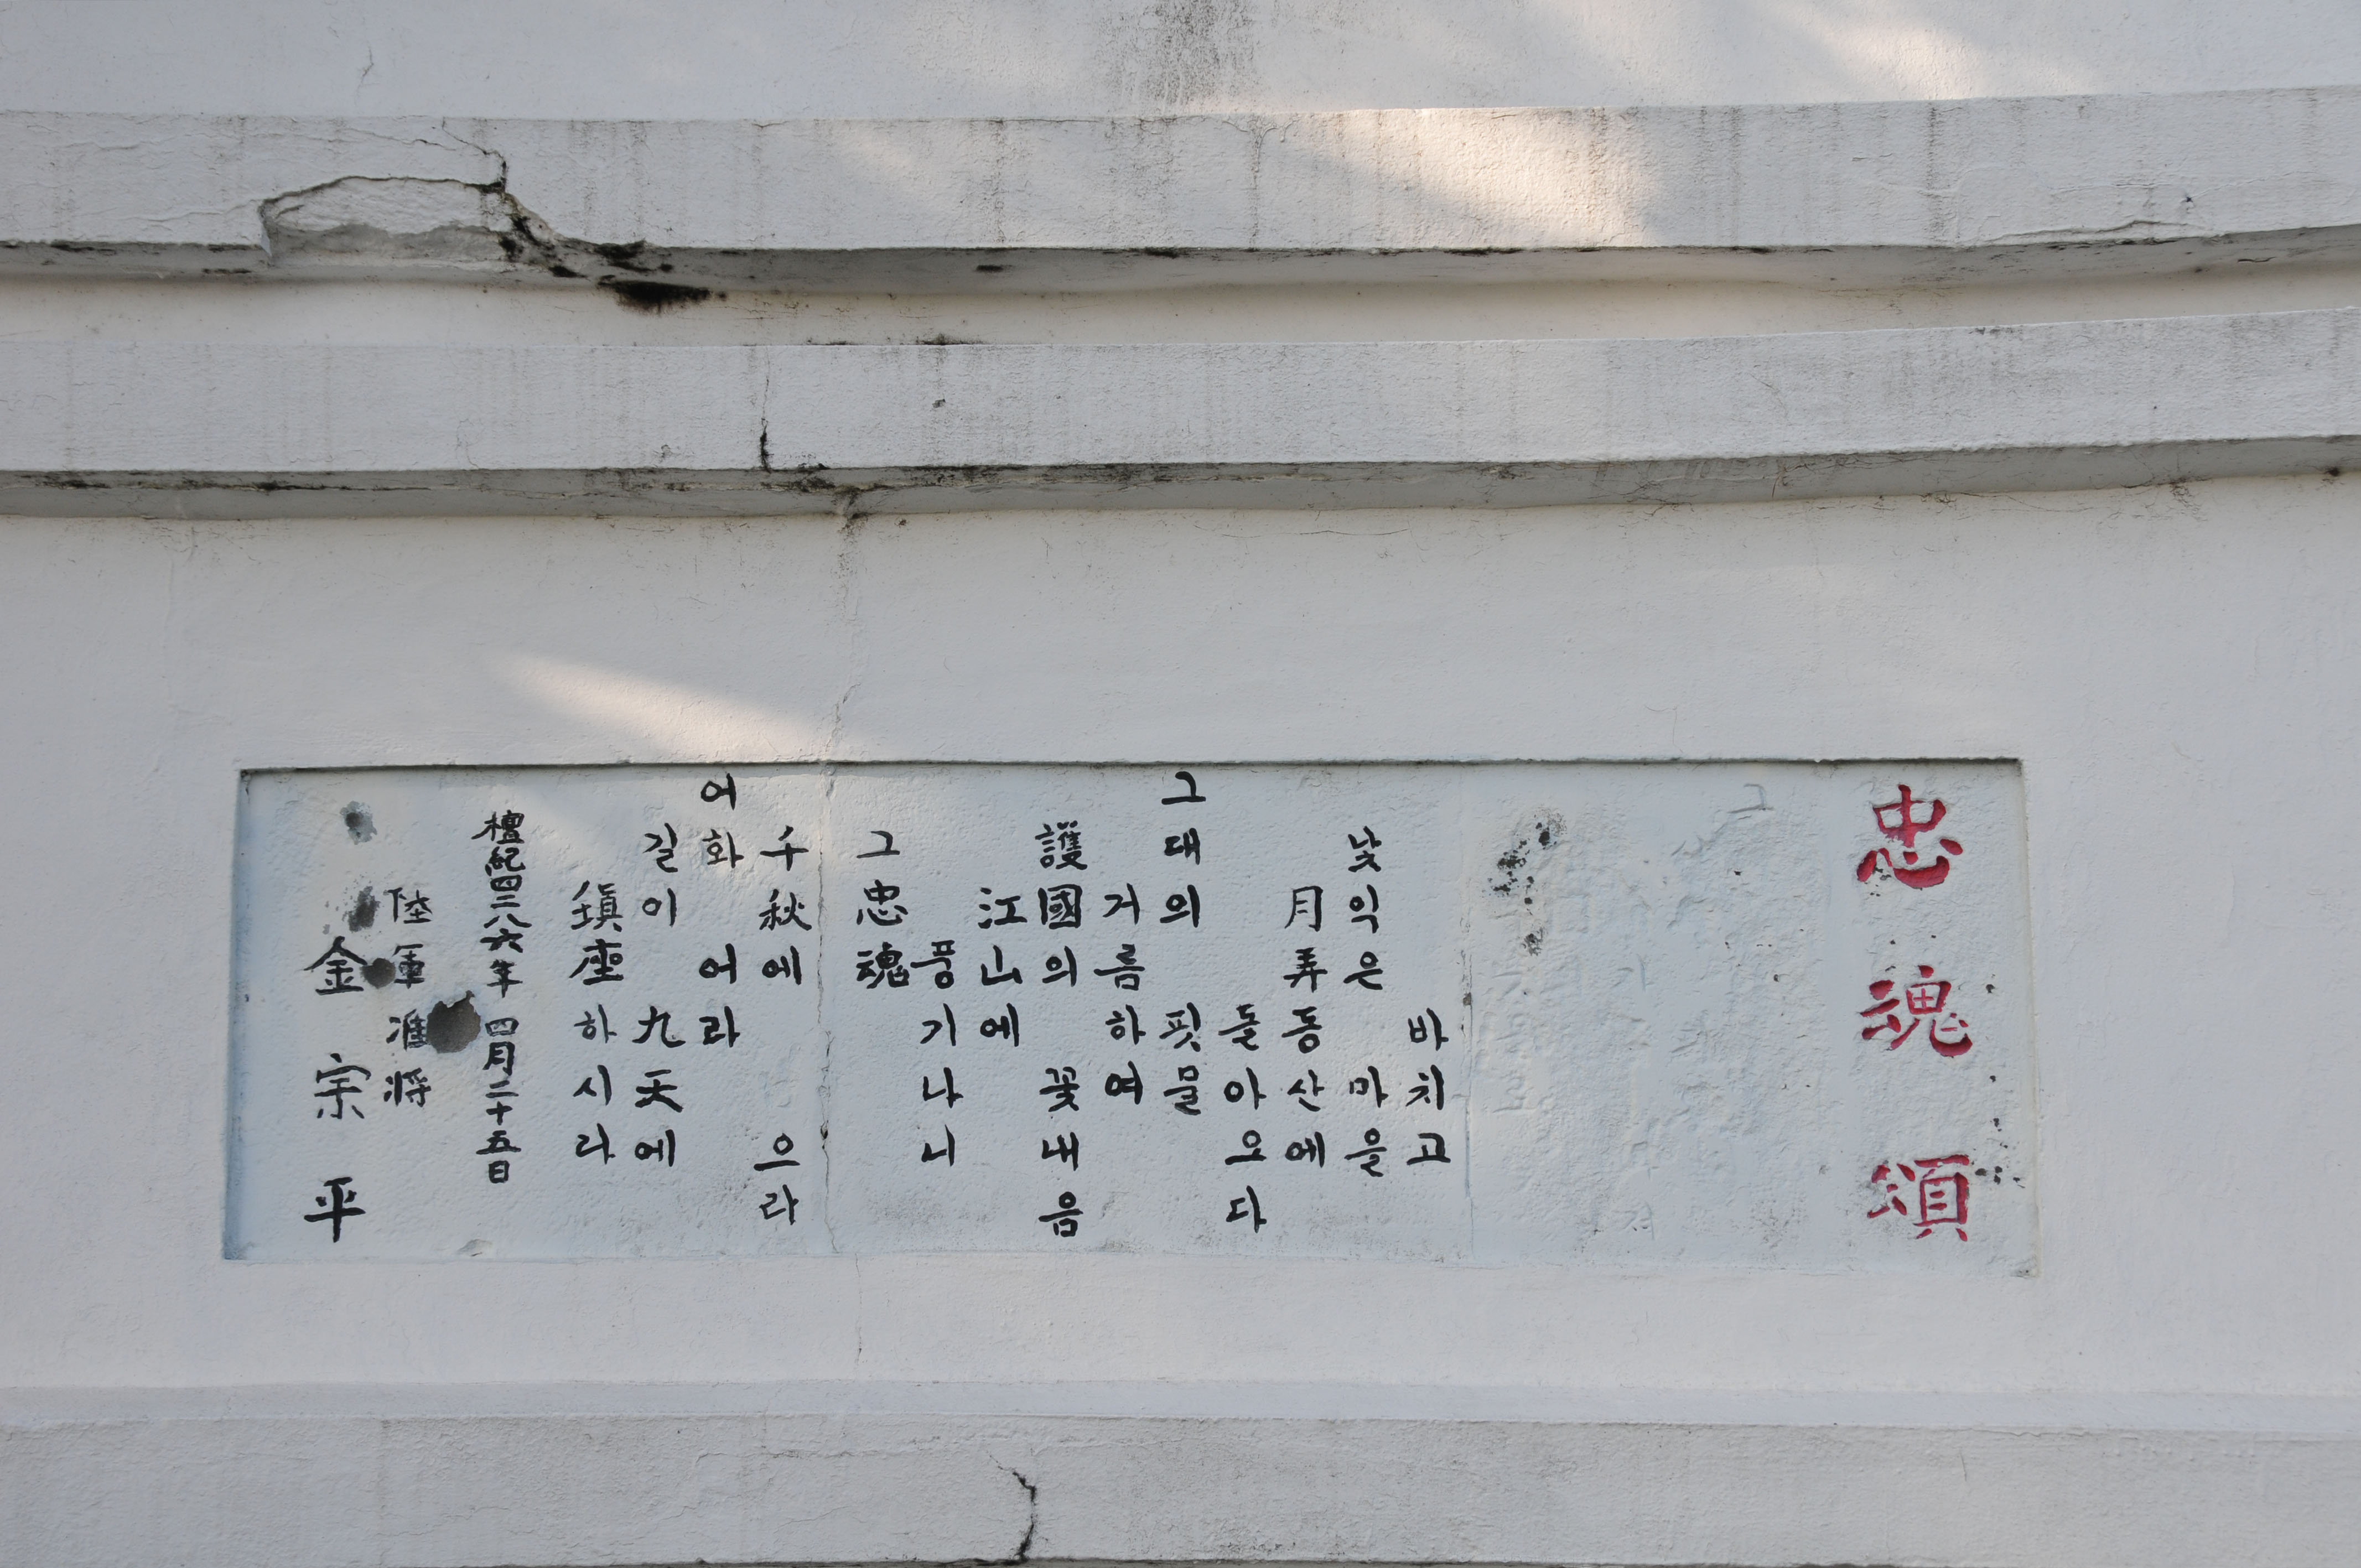 忠魂頌
바치고
낯익은 마을
月弄동산에
돌아오다
그대의 핏물
거름하여
護國의 꽃내음
江山에
풍기나니
그忠魂
千秋에 으라
어화 어라
길이 九天에
鎭座하시라
檀紀四二八六年 四月二十五日
陸軍准將
金宗平